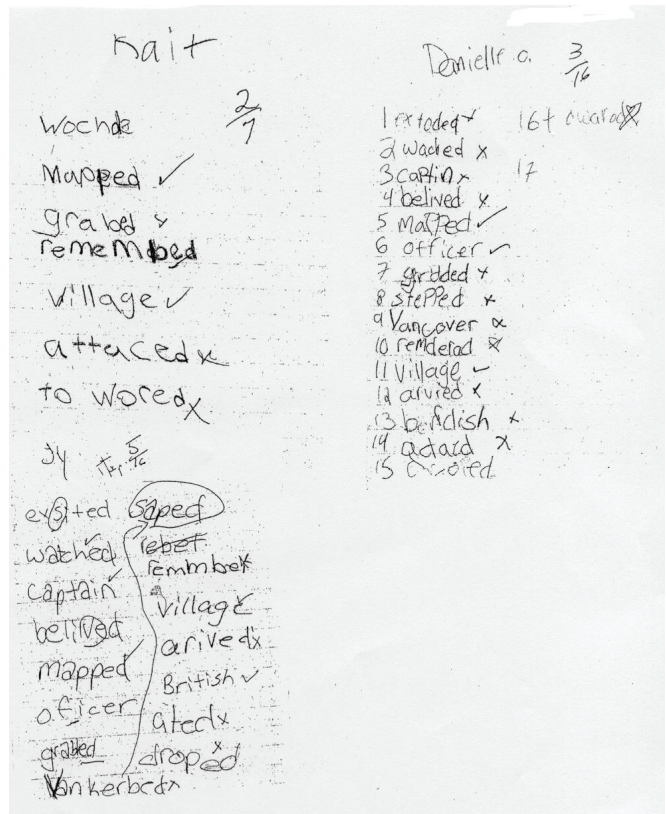 Kait
2/7
Wochde
Mapped ✓
grabed x
remembed
village ✓
attaced x
to wored x
Jy 5/16
exsited
watched ✓
captain ✓
belived
mapped ✓
oficer
grabed
Vankerbed x
Saped
rebet
remmber x
village ✓
arived x
British ✓
ated x
droped x
Danielle o. 3/16
1 extoded x
2 wached x
3 captin x
4 belived x
5 mapped ✓
6 officer ✓
7 grdded x
8 stepped x
9 Vancover x
10 remderad x
11 village ✓
12 arured x
13 bifidish x
14 adacd x
15
16 towarad x
17